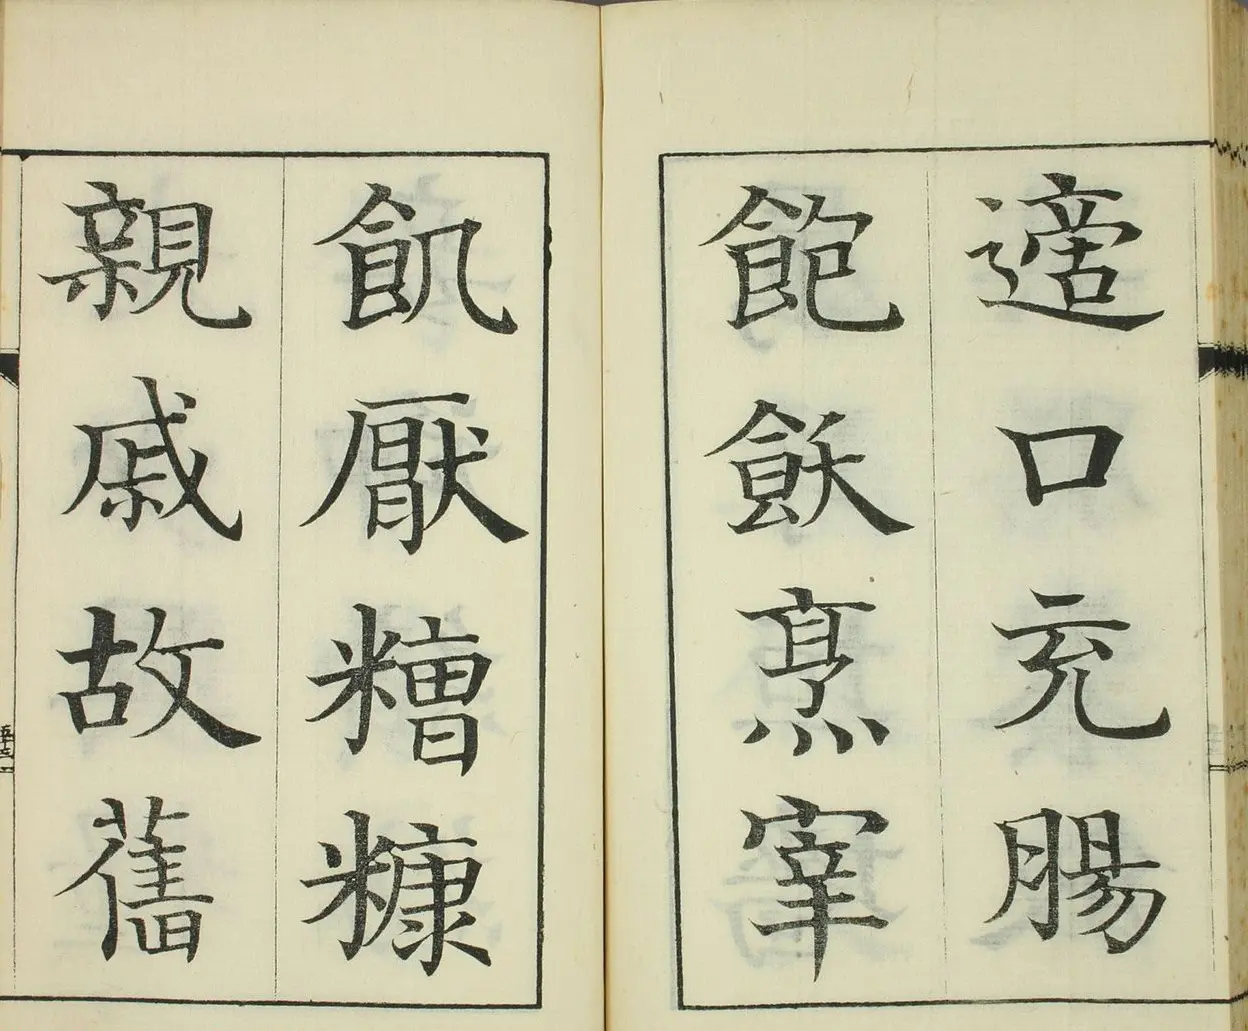 適口充腸
飽飫烹宰
飢厭糟糠
親戚故舊